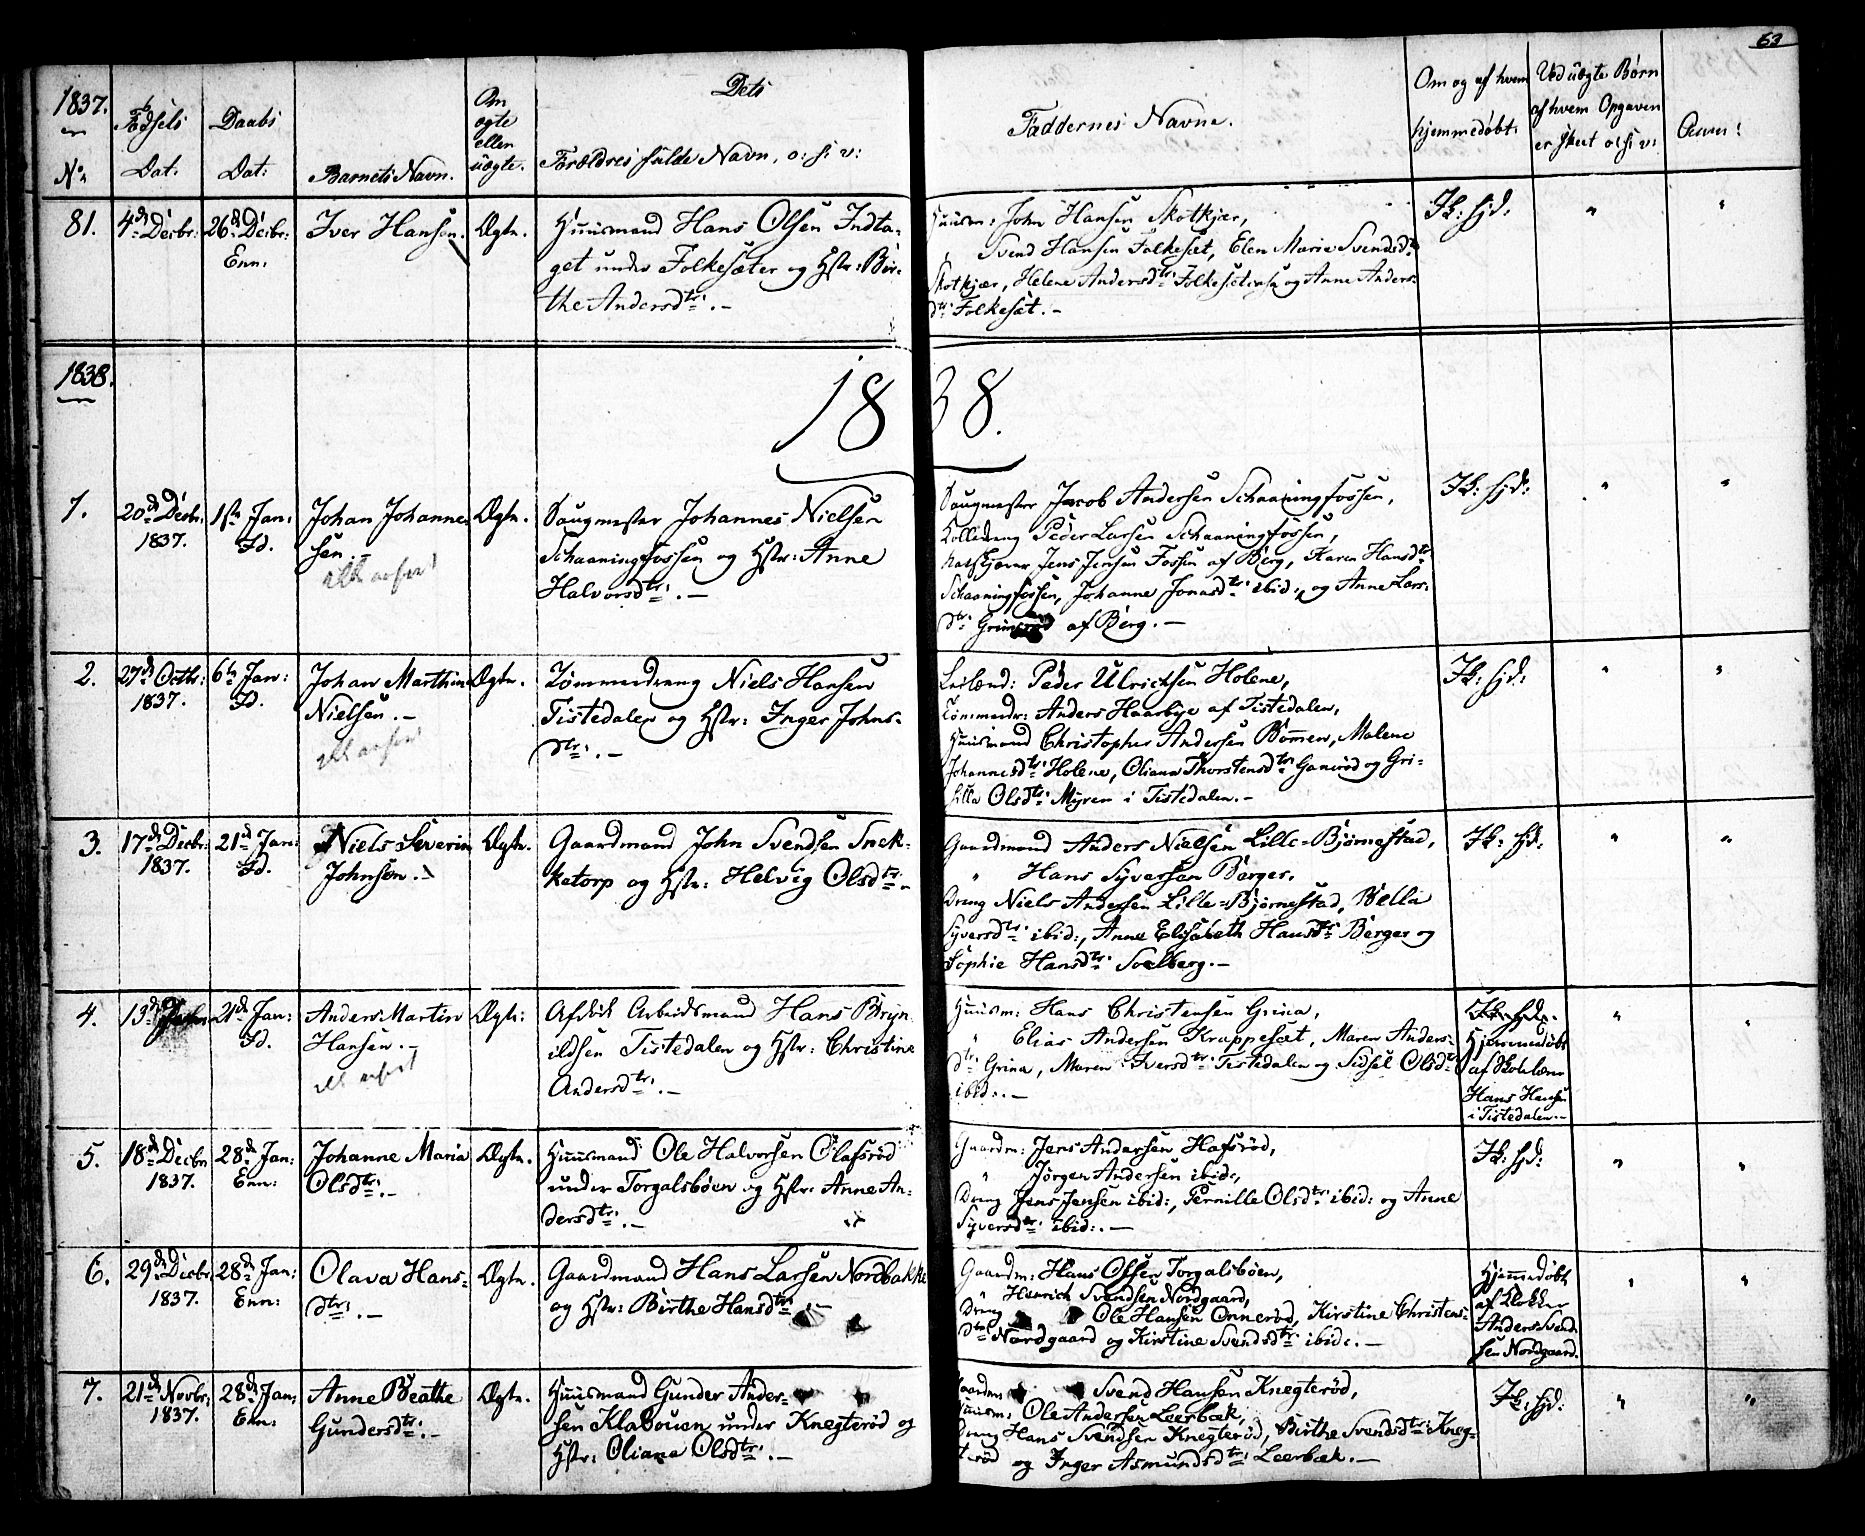 63
1837.
No
Fødsels
Dat.
Daabs
Dat:
Barnets Navn.
Om
ægte
eller
uægte.
Dets
Forældres fulde Navn, o: s: v:
Faddernes Navne.
Om og af hvem
hjemmedøbt.
Ved uægte Børn
af hvem Opgaven
er skeet o: s: v:
Anm:
81.
4de Decbr:
26de Decbr:
Enn:
Iver Hansen.
Ægte.
Huusmand Hans Olsen Indta-
get under Folkesæter og Hstr: Bir-
the Andersdtr: . -
Huusm: John Hansen Skotkjær,
Svend Hansen Folkesæt, Elen Marie Svendsdtr
Skotkjær, Helene Andersdtr: Folkesæteren og Anne Anders-
dtr: Folkesæt. -
Ik: hjd:
"
"
1838.
1838.
1.
20de Decbr:
1837.
1ste Jan:
Id.
Johan Johanne-
sen. -
Ægte.
Saugmester Johannes Nielsen
Schaaningfossen og Hstr: Anne
Halvorsdtr: . -
Saugmester Jacob Andersen Schaaningfossen,
Peder Larsen Schaaningfossen,
Jens Jensen Fossen af Berg, Karen Hansdtr
Schaaningfossen, Johanne Jonasdtr: ibid:, og Anne Lars-
dtr: af Berg. -
Ik: hjd:
"
"
2.
27de Octbr:
1837.
6te Jan:
Id.
Johan Marthin
Nielsen. -
Ægte.
Tømmerdreng Niels Hansen
Tistedalen og Hstr: Inger Johns-
dtr: . -
Leilænd: Peder Ulrichsen Holene,
Tømmerdr: Anders Haarbye af Tistedalen,
Huusmand Christopher Andersen Bommen, Malene
Johannesdtr: Holene, Oliana Thorstensdtr: Ganerød og Gri-
silla Olsdtr: Myren i Tistedalen. -
Ik: hjd:
"
"
3.
17de Decbr:
1837.
21de Jan:
Id.
Niels Severin
Johnsen. -
Ægte.
Gaardmand John Svendsen Snek-
ketorp og Hstr: Helvig Olsdtr: -
Gaardmand Anders Nielsen Lille-Bjørnestad,
" Hans Syversen Berger.
Dreng Niels Andersen Lille-Bjørnestad, Bella
Syversdtr: ibid:, Anne Elisabeth Hansdtr: Berger og
Sophie Hansdtr: Soelberg. -
Ik: hjd:
"
"
4.
13de
21de Jan:
Id.
Anders Martin
Hansen. -
Ægte:
Afskd: Arbeidsmand Hans Bryn-
ildsen Tistedalen og Hstr: Christine
Andersdtr: . -
Huusm: Hans Christensen Grina,
" Elias Andersen Krappesæt, Maren Anders-
dtr: Grina, Maren Iversdtr: Tistedalen og Sidsel Olsdtr:
ibid: . -
Ik: hjd:
Hjemmedøbt
af Skolelærer
Hans Hansen
i Tistedalen. -
"
"
5.
18de Decbr
1837.
28de Jan:
Enn:
Johanne Maria
Olsdtr: . -
Ægte.
Huusmand Ole Halvorsen Olafsrød
under Torgalsbøen og Hstr: Anne An-
dersdtr: . -
Gaardm: Jens Andersen Hafsrød,
" Jørgen Andersen ibid:,
Dreng Jens Jensen ibid:, Pernille Olsdtr: ibid: og Anne
Syversdtr: ibid: . -
Ik: hjd:
"
"
6.
29de Decbr
1837.
28de Jan:
Enn:
Olava Hans-
dtr: . -
Ægte.
Gaardmand Hans Larsen Nordbakke
og Hstr: Birthe Hansdtr: . -
Gaardm: Hans Olsen Torgalsbøen,
" Henrich Svendsen Nordgaard,
Dreng Ole Hansen Onnerød, Kirstine Christens-
dtr: Nordgaard og Kirstine Svendsdtr: ibid: . -
Hjemmedøbt
af Klokker
Anders Svend-
sen Nordgaard.
"
"
7.
21de Novbr:
1837.
28de Jan:
Enn:
Anne Beathe
Gundersdtr: . -
Ægte.
Huusmand Gunder Ander-
sen Klabouen under Knegterød og
Hstr: Oliana Olsdtr: . -
Gaardm: Svend Hansen Knegterød,
Huusm: Ole Andersen Leerbæk,
Dreng Hans Svendsen Knegterød, Birthe Svendsdtr: Kneg-
terød og Inger Asmundsdtr: Leerbæk. -
Ik: hjd:
"
"